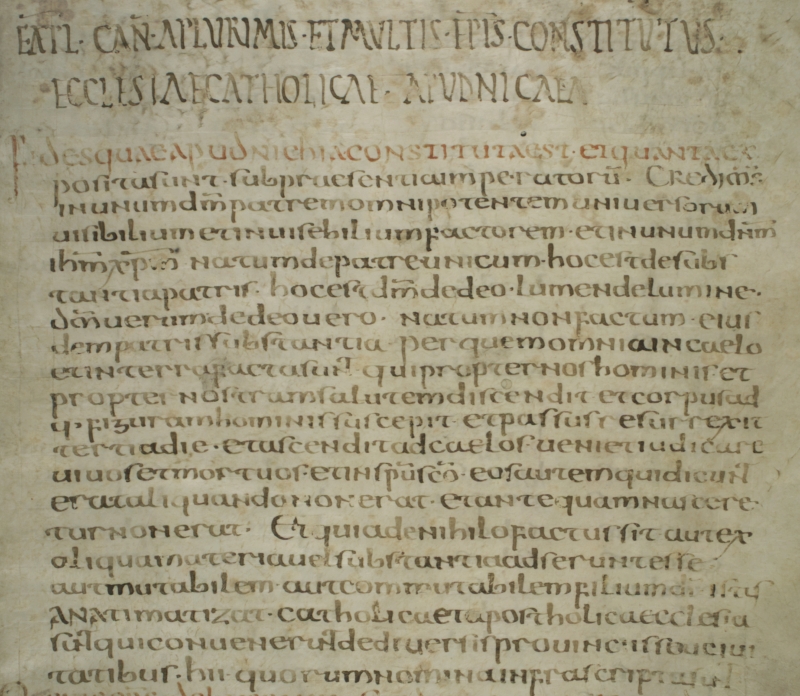 CAN A PLURIMIS ET MULTIS EPIS CONSTITUTUS
ECCLESIAE CATHOLICAE APUD NICAEA
FIDES QUAE APUD NICHIA CONSTITUTA EST ET QUANTA
posita sunt sub praesentia imperatorū. Credim̄
in unum dm̄ patrem omnipotentem universorum
uisibilium et inuisebilium factorem et in unum dnm̄
ihm̄ natum de patre unicum hoc est de subs
tantia patris hoc est dm̄ de deo lumen de lumine
dm̄ uerum de deo uero natum non factum eius
dem patris substantia per quem omnia in caelo
et in terra facta sunt qui propter nos hominis et
propter nostram salutem discendit et corpus ad
figuram hominis suscepit et passus resurrexit
tertia die et ascendit ad caelos ueniet iudicare
uiuos et mortuos et in spu sco eos autem qui dicunt
erat aliquando non erat et ante quam nascere
tur non erat Et quia de nihilo factus sit aut ex
oliqua materia uel substantia adserunt esse
aut mutabilem aut commutabilem filium di
ANATIMATIZAT catholica et apostholica ecclesia
sunt qui conuenerunt de diuersis prouinciis
tatibus hii quorum nomina infra scripta sunt